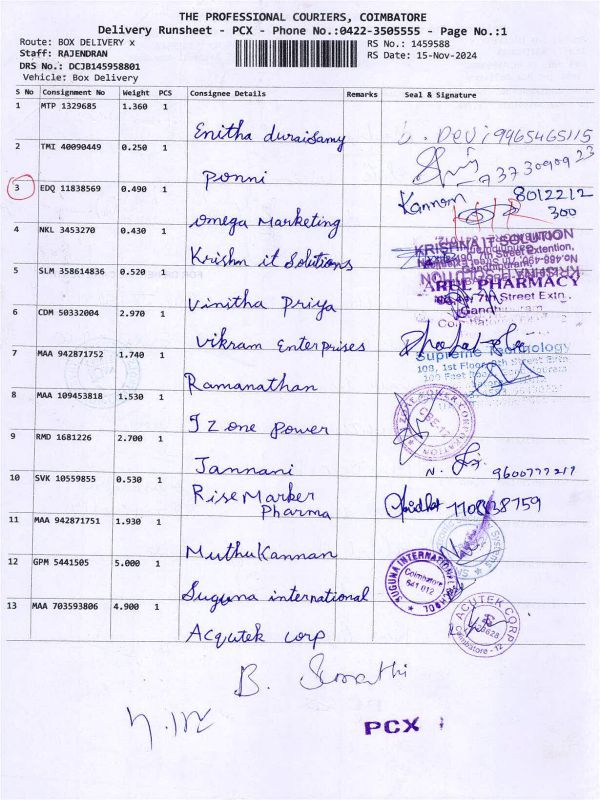 THE PROFESSIONAL COURIERS, COIMBATORE
Delivery Runsheet - PCX - Phone No.:0422-3505555 - Page No.:1
Route: BOX DELIVERY x
RS No.: 1459588
Staff: RAJENDRAN
RS Date: 15-Nov-2024
DRS No.: DCJB145958801
Vehicle: Box Delivery
S No Consignment No Weight PCS Consignee Details Remarks Seal & Signature
1 MTP 1329685 1.360 1
Enitha duraisamy Devi 9965465115
2 TMI 40090449 0.250 1
Ponni 9373090923
3 EDQ 11838569 0.490 1
Omega Marketing Kannan 8012212
300
4 NKL 3453270 0.430 1
Krishn it Solutions KRISHNA IT SOLUTION
5 SLM 358614836 0.520 1
Vinitha Priya ARUL PHARMACY
7th Street Extn.
6 CDM 50332004 2.970 1
Vikram Enterprises
7 MAA 942871752 1.740 1
Ramanathan Supreme Technology
108, 1st Floor, 9th Street Extn
8 MAA 109453818 1.530 1
I Z one Power
9 RMD 1681226 2.700 1
Jannani 9600777217
10 SVK 10559855 0.530 1
Rise Marker
Pharma
11 MAA 942871751 1.930 1
MuthuKannan
12 GPM 5441505 5.000 1
Suguna international SUGUNA INTERNATIONAL SCHOOL
Coimbatore
641 012
13 MAA 703593806 4.900 1
Acqutek Corp ACUTEK CORP
Coimbatore - 12
B.
PCX